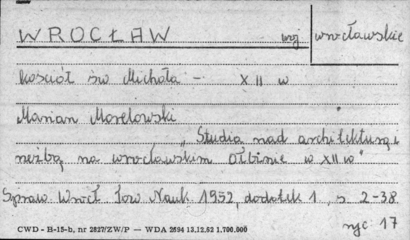 WROCŁAW woj wrocławskie
Kościół św Michała - XII w
Marian Morelowski
„Studia nad architekturą i
rzeźbą na wrocławskim Ołbinie w XII w"
Spraw Wrocł Tow Nauk 1952, dodatek 1, s. 2-38
ryc 17
CWD - H-15-b, nr 2827/ZW/P — WDA 2694 13.12.52 1.700.000